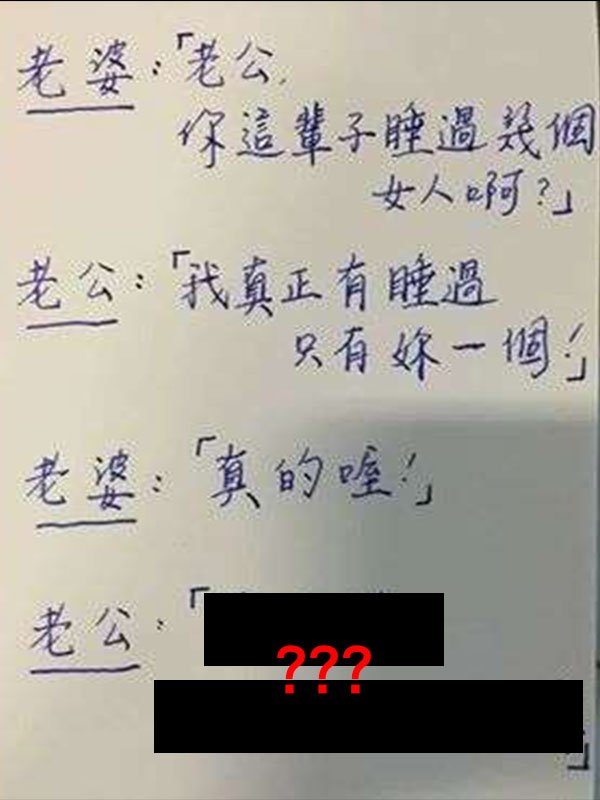 老婆：「老公，
你這輩子睡過幾個
女人啊？」
老公：「我真正有睡過
只有妳一個！」
老婆：「真的哇！」
老公：「
???
」